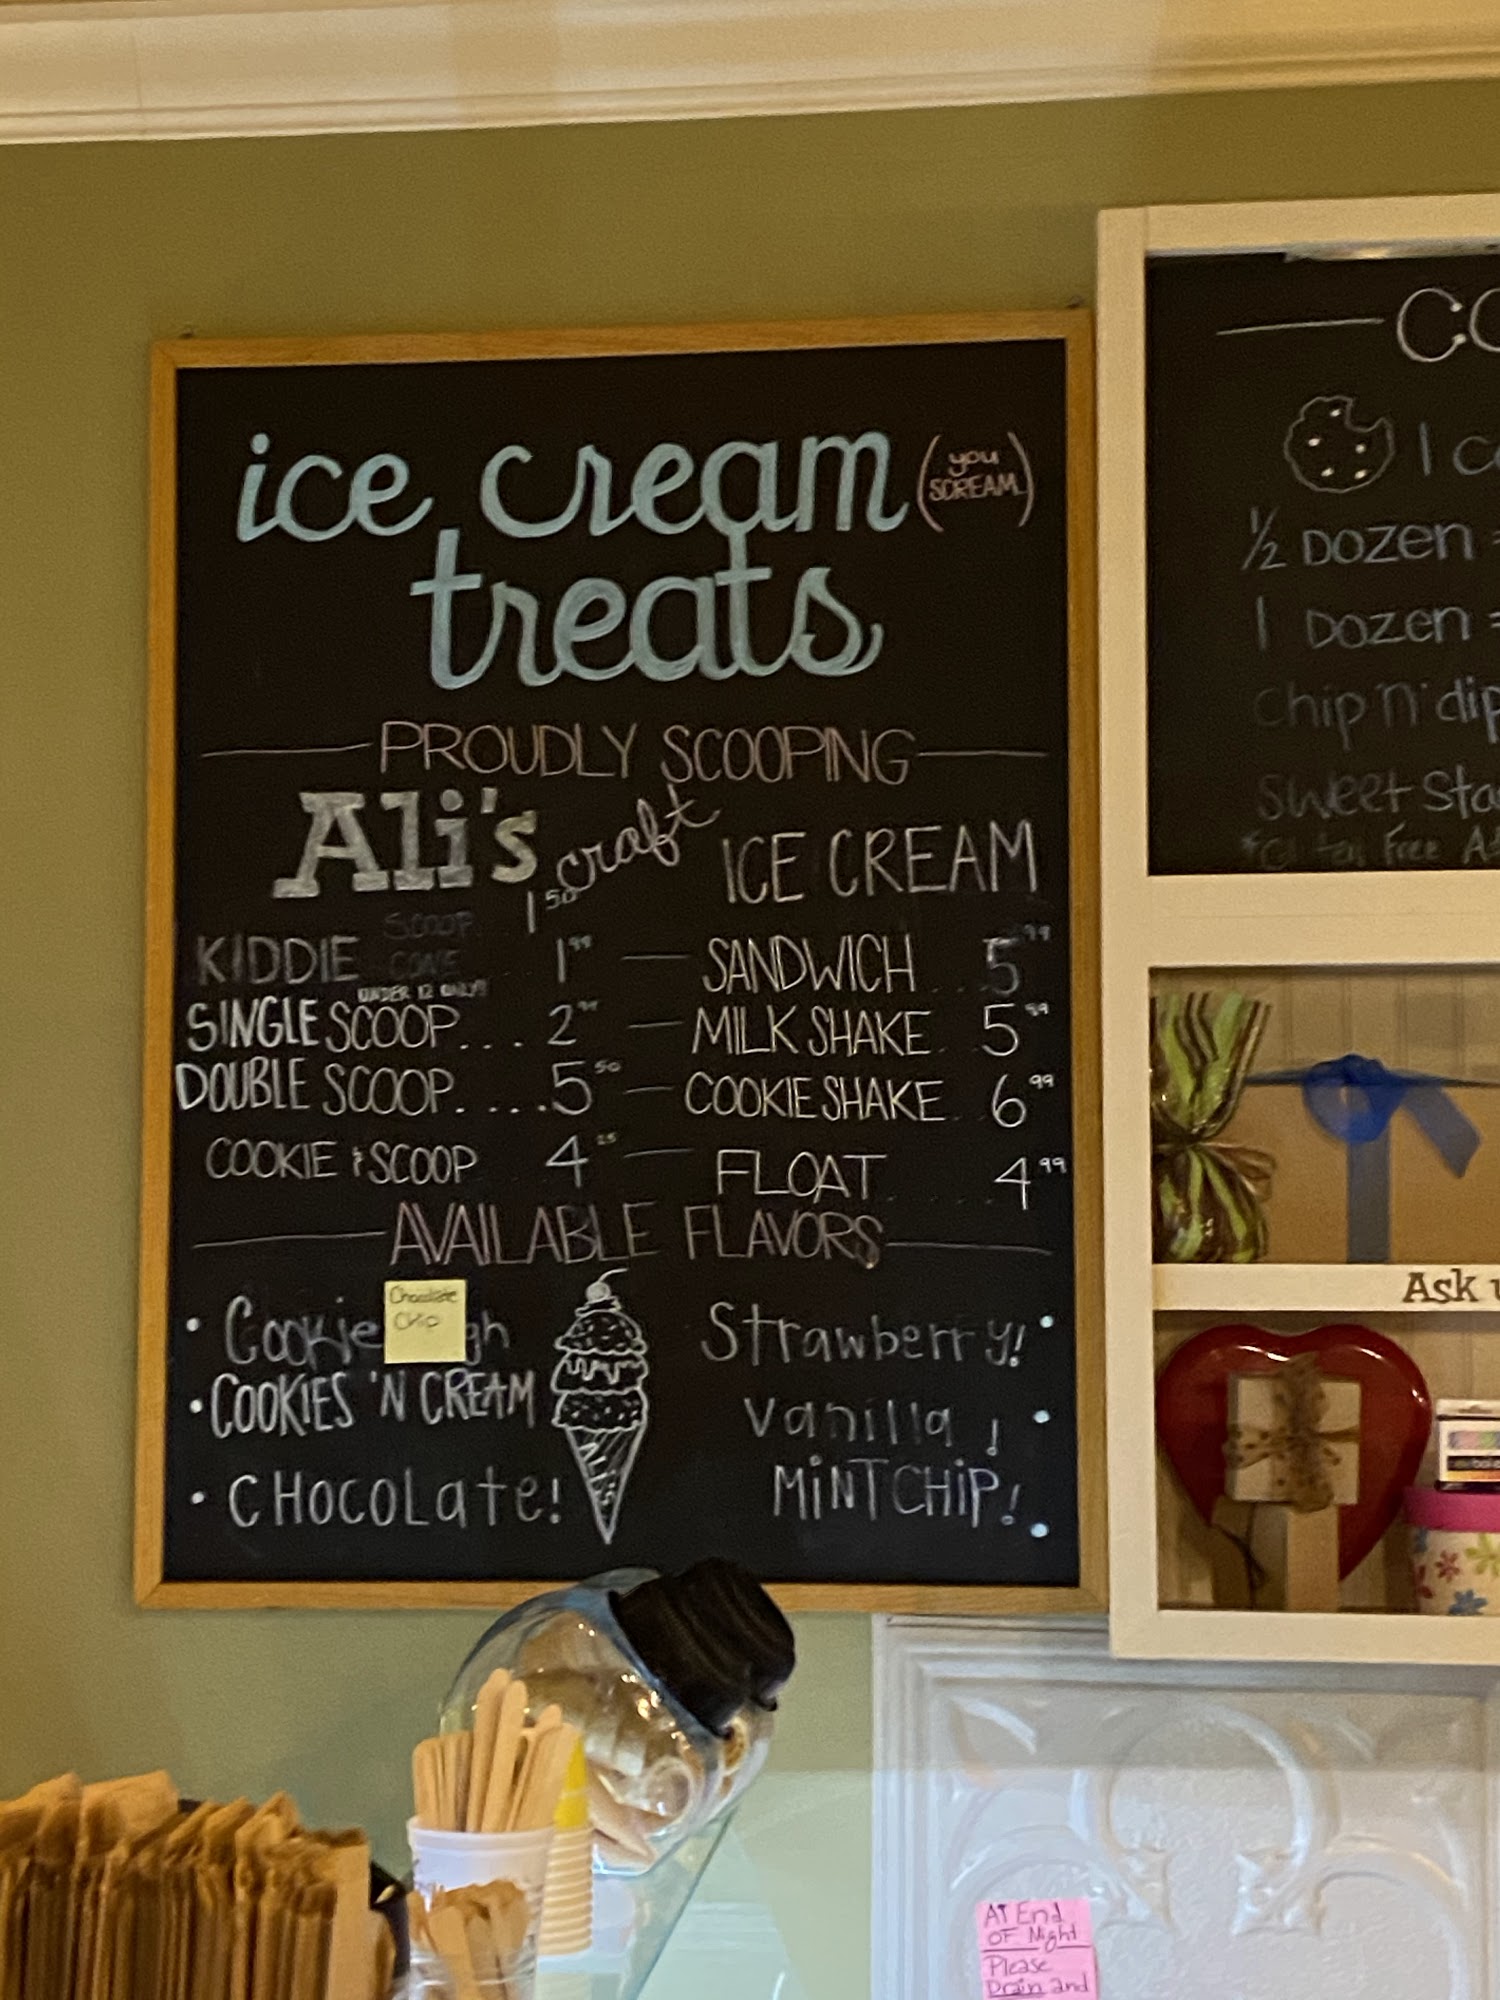 ice cream (you SCREAM.)
treats
PROUDLY SCOOPING
Ali's craft ICE CREAM
KIDDIE SCOOP 1.50
CONE 1.99
UNDER 12 ONLY!!
SINGLE SCOOP.... 2
DOUBLE SCOOP.....5.50
COOKIE & SCOOP 4.25
SANDWICH ... 5.99
MILKSHAKE. 5.99
COOKIE SHAKE.. 6.99
FLOAT.... 4.99
AVAILABLE FLAVORS
• Cookie gh
Chocolate
Chip
• COOKIES 'N CREAM
• CHOCOLate!
Strawberry! •
Vanilla! •
MiNT CHiP! •
CO
1 co
1/2 DOZEN =
1 DOZEN =
Chip 'n' dip
Sweet Sta
Free
Ask u
AT End
OF Night
Please
Drain and